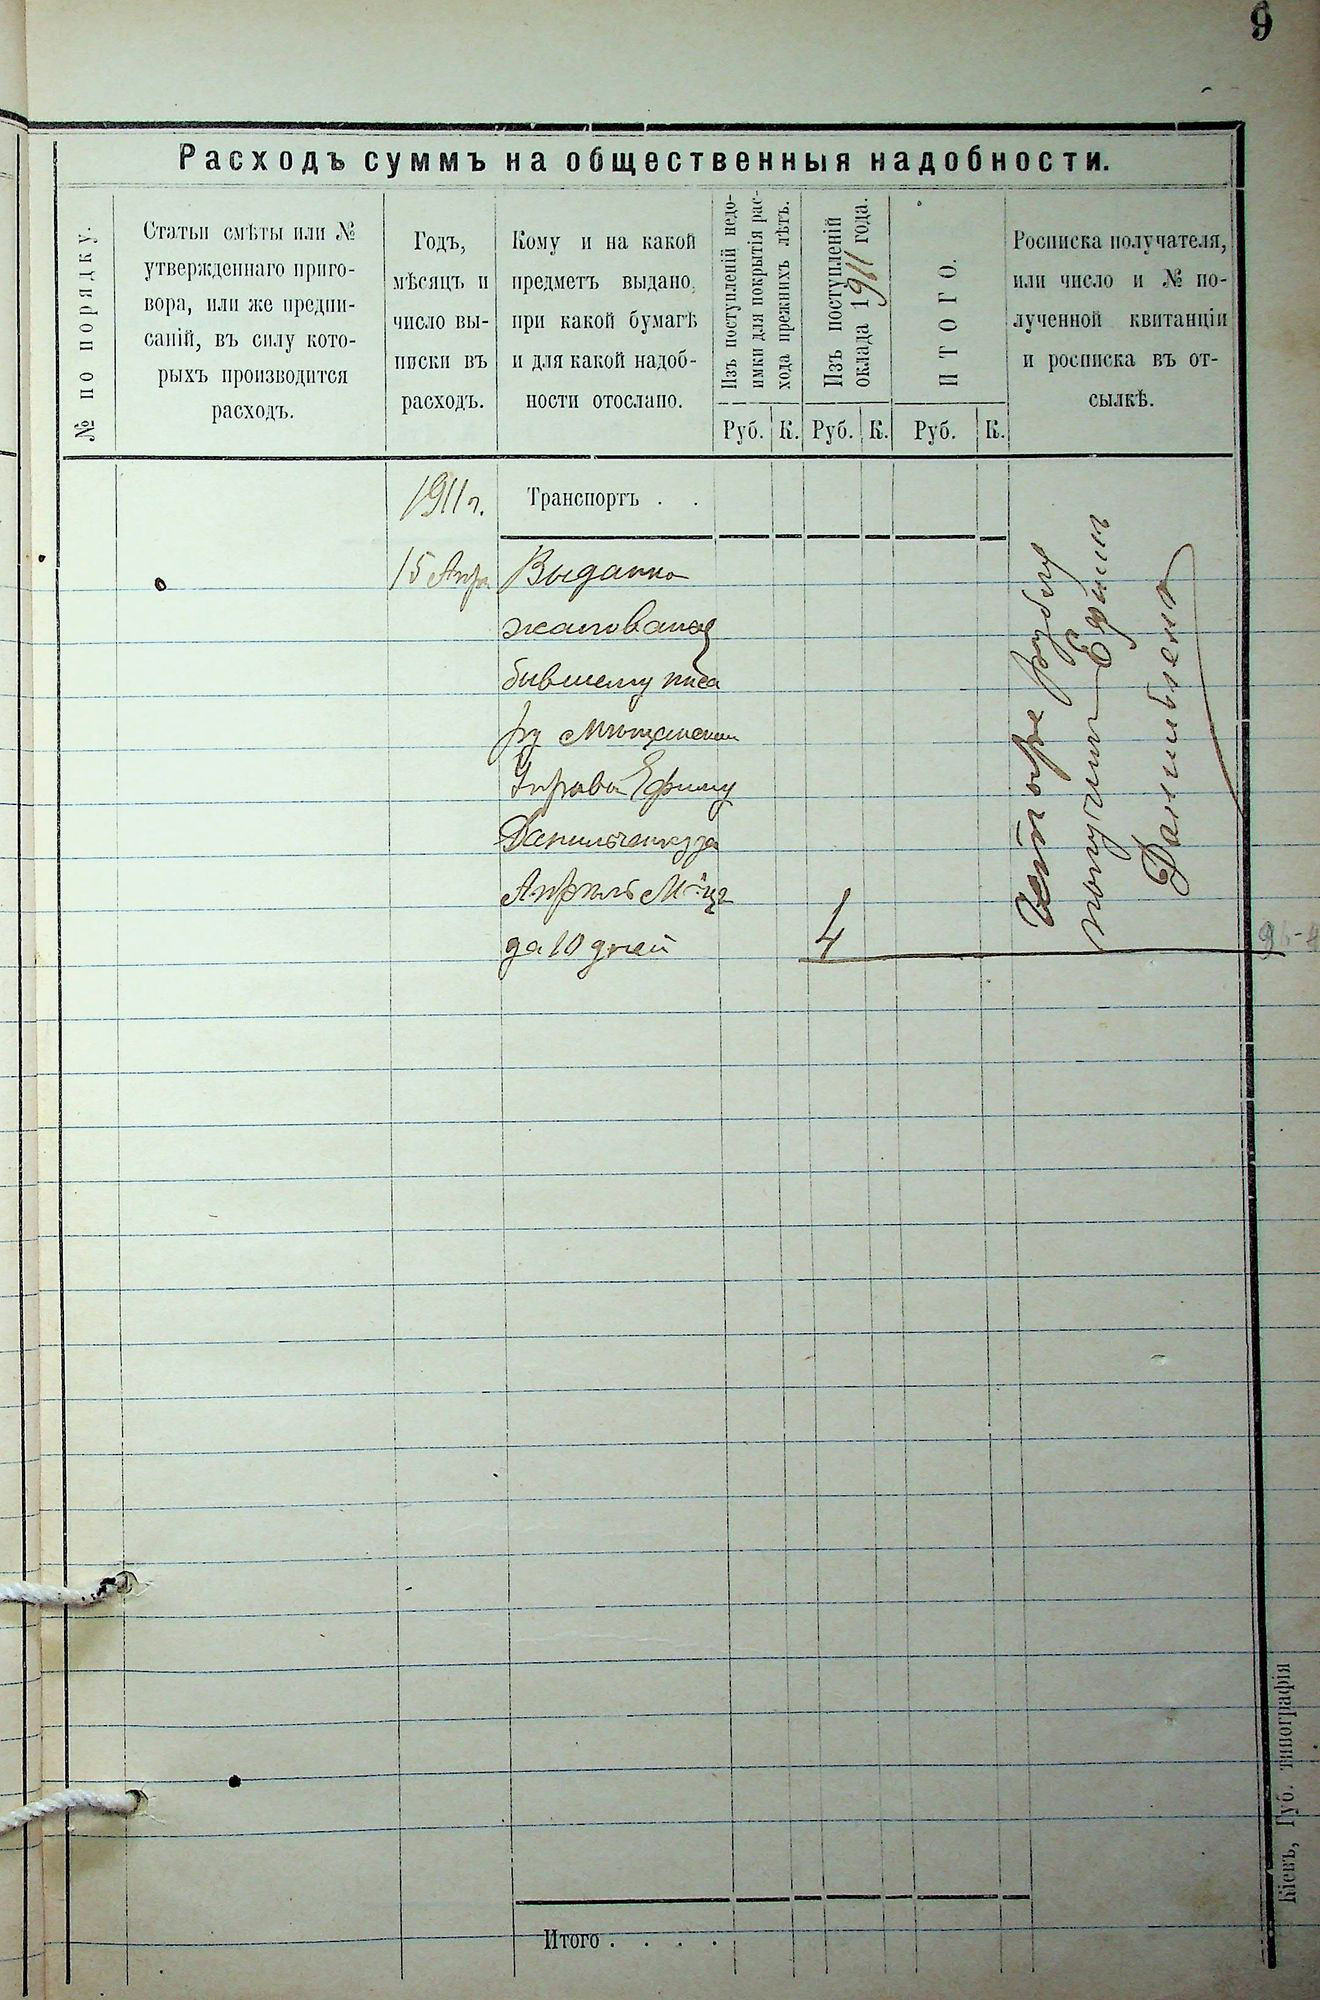 9
Расходъ суммъ на общественныя надобности.
№ по порядку.
Статьи смѣты или №
утвержденнаго приго-
вора, или же предпи-
саній, въ силу кото-
рыхъ производится
расходъ.
Годъ,
мѣсяцъ и
число вы-
писки въ
расходъ.
Кому и на какой
предметъ выдано,
при какой бумагѣ
и для какой надоб-
ности отослано.
Изъ поступленій недо-
имки для покрытія рас-
хода прежнихъ лѣтъ.
Изъ поступленій
оклада 1911 года.
ИТОГО.
Росписка получателя,
или число и № по-
лученной квитанціи
и росписка въ от-
сылкѣ.
Руб. К. Руб. К. Руб. К.
1911 г. Транспортъ . .
15 Апр Выдано
жалованя
бывшему писа
ру Мищанской
Управы Ефиму
Данильченку за
Апрель М-цъ
за 10 дней 4
Четыре рубля
получилъ Ефимъ
Данильченко
Итого . . . .
Кіевъ, Губ. типографія